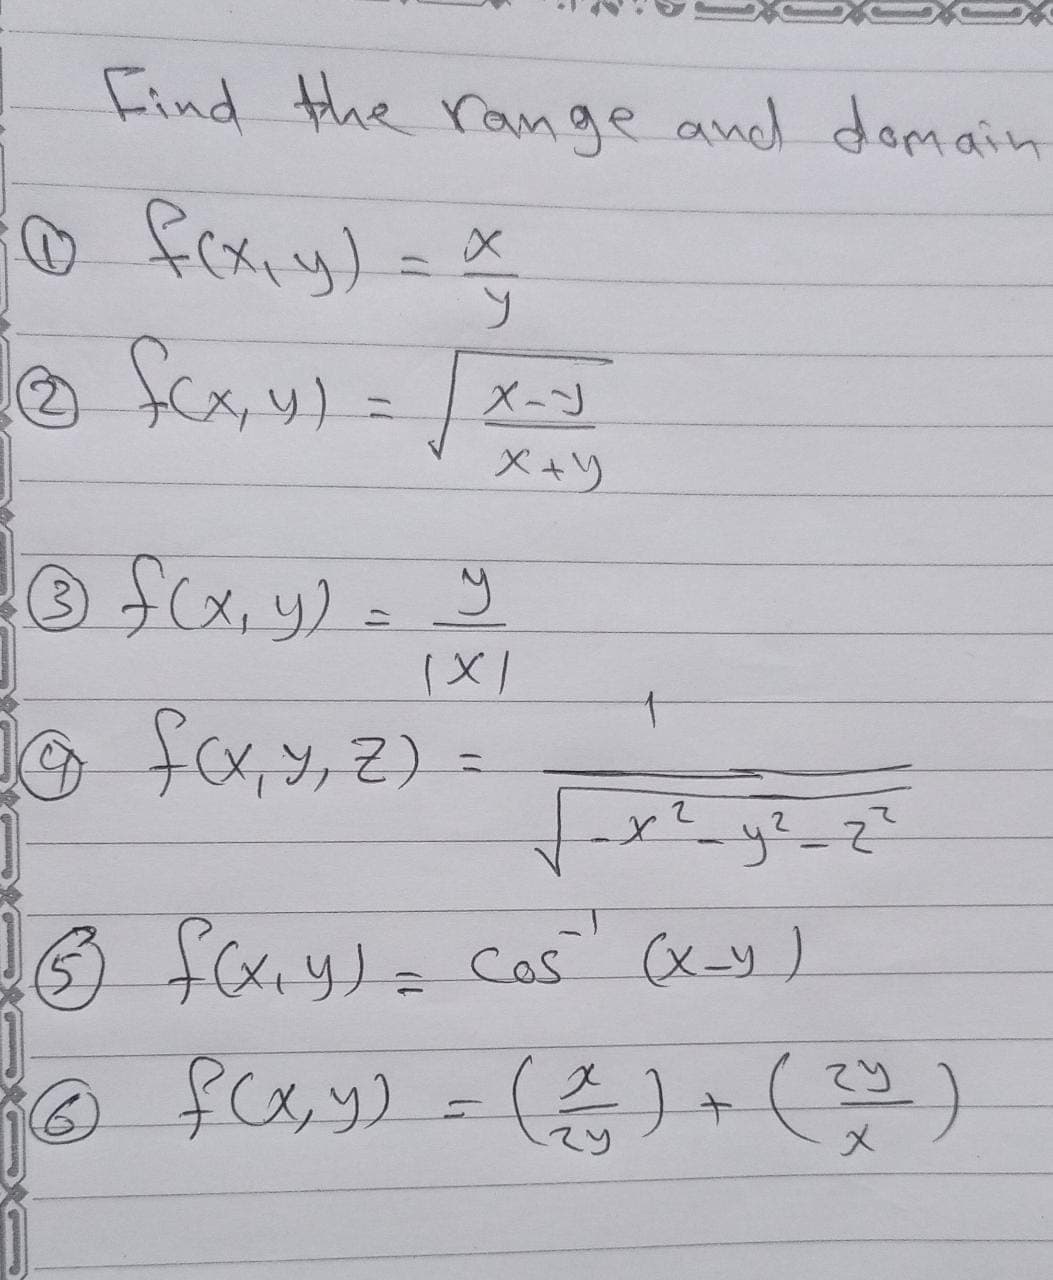 Find the range and domain
① f(x,y) = x/y
② f(x,y) = √((x-y)/(x+y))
③ f(x,y) = y/|x|
④ f(x,y,z) = 1/√(-x²-y²-z²)
⑤ f(x,y) = cos⁻¹(x-y)
⑥ f(x,y) = (x/2y) + (2y/x)